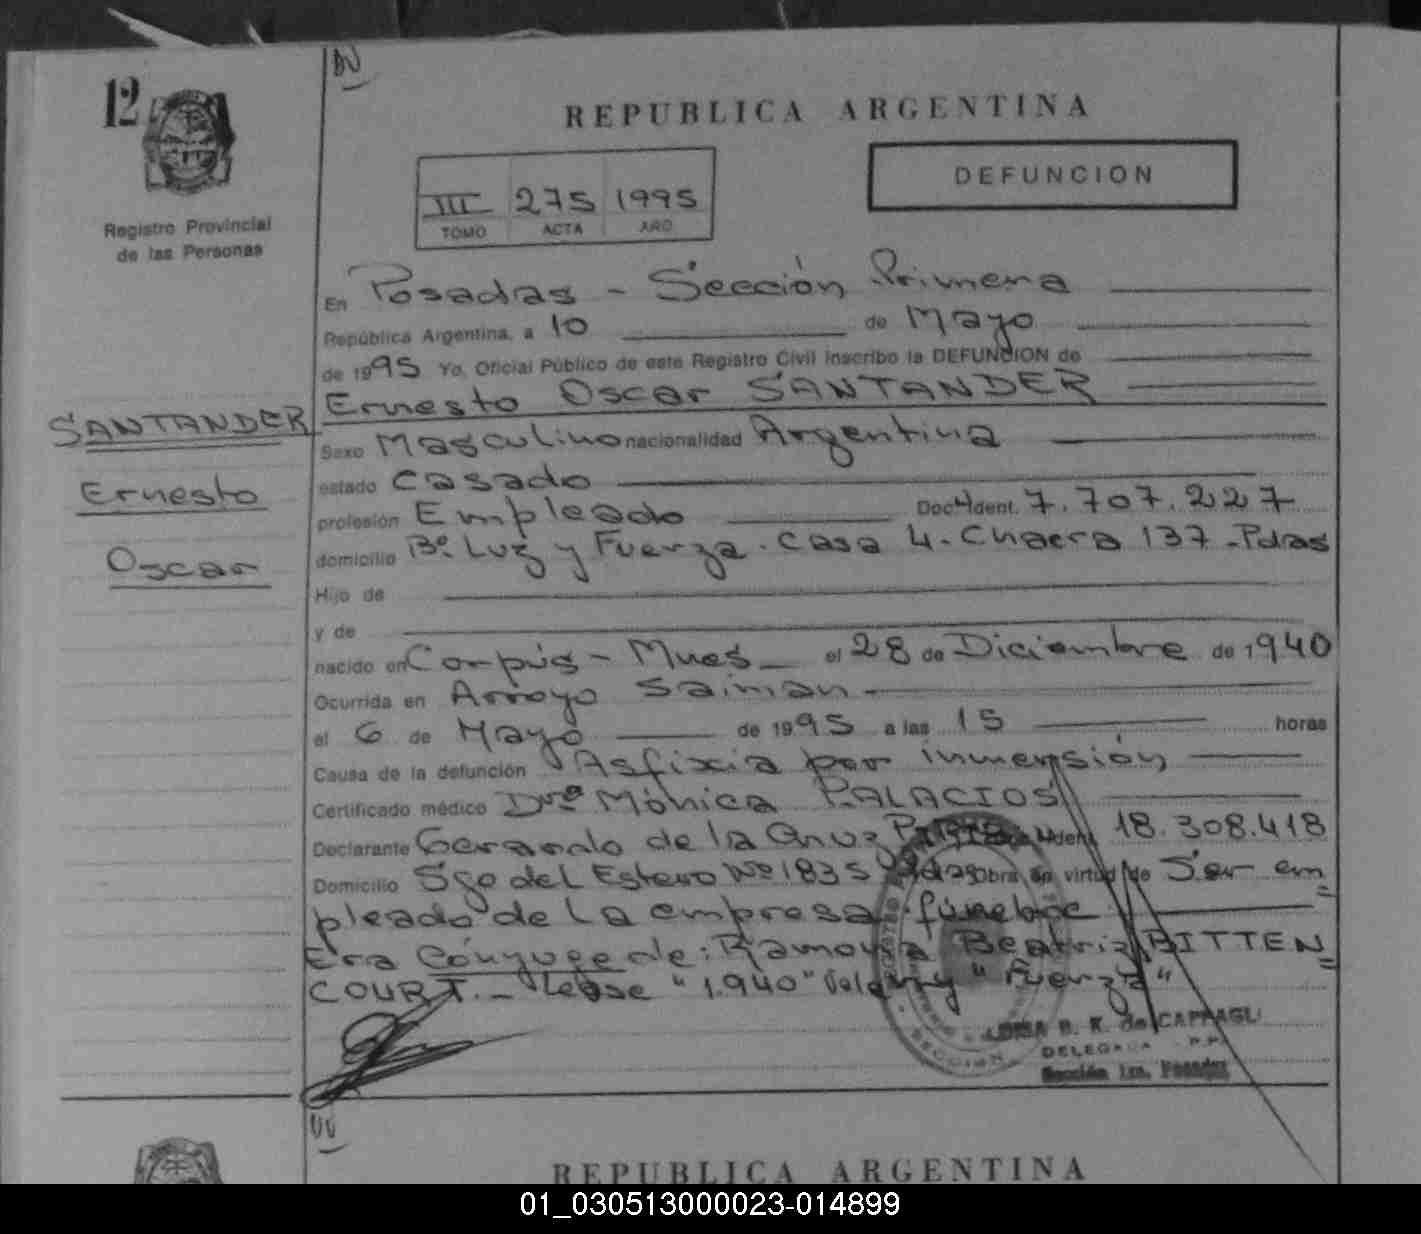 12
Registro Provincial
de las Personas
SANTANDER
Ernesto
Oscar
REPUBLICA ARGENTINA
DEFUNCION
III 275 1995
TOMO ACTA AÑO
En Posadas - Sección Primera
República Argentina, a 10 de Mayo
de 1995 Yo, Oficial Público de este Registro Civil inscribo la DEFUNCION de
Ernesto Oscar SANTANDER
Sexo Masculino nacionalidad Argentina
estado Casado
profesión Empleado Doc. Ident. 7.707.227
domicilio Bº. Luz y Fuerza. Casa 4. Chacra 137 - Pdas
Hijo de
y de
nacido en Corpus - Mnes. el 28 de Diciembre de 1940
Ocurrida en Arroyo
el 6 de Mayo de 1995 a las 15 horas
Causa de la defunción Asfixia por inmersión
Certificado médico Drª Mónica PALACIOS
Declarante Gerardo de la Cruz Ident. 18.308.418
Domicilio Sgo del Estero Nº 1835 Pdas Obra en virtud de Ser em
pleado de la empresa fúnebre
Era Cónyuge de: Ramona Beatriz BITTEN
COURT. - Lease "1.940" "Fuerza"
B. K. de
DELEGADA
Sección 1ra. Posadas
SECCION
REPUBLICA ARGENTINA
01_030513000023-014899